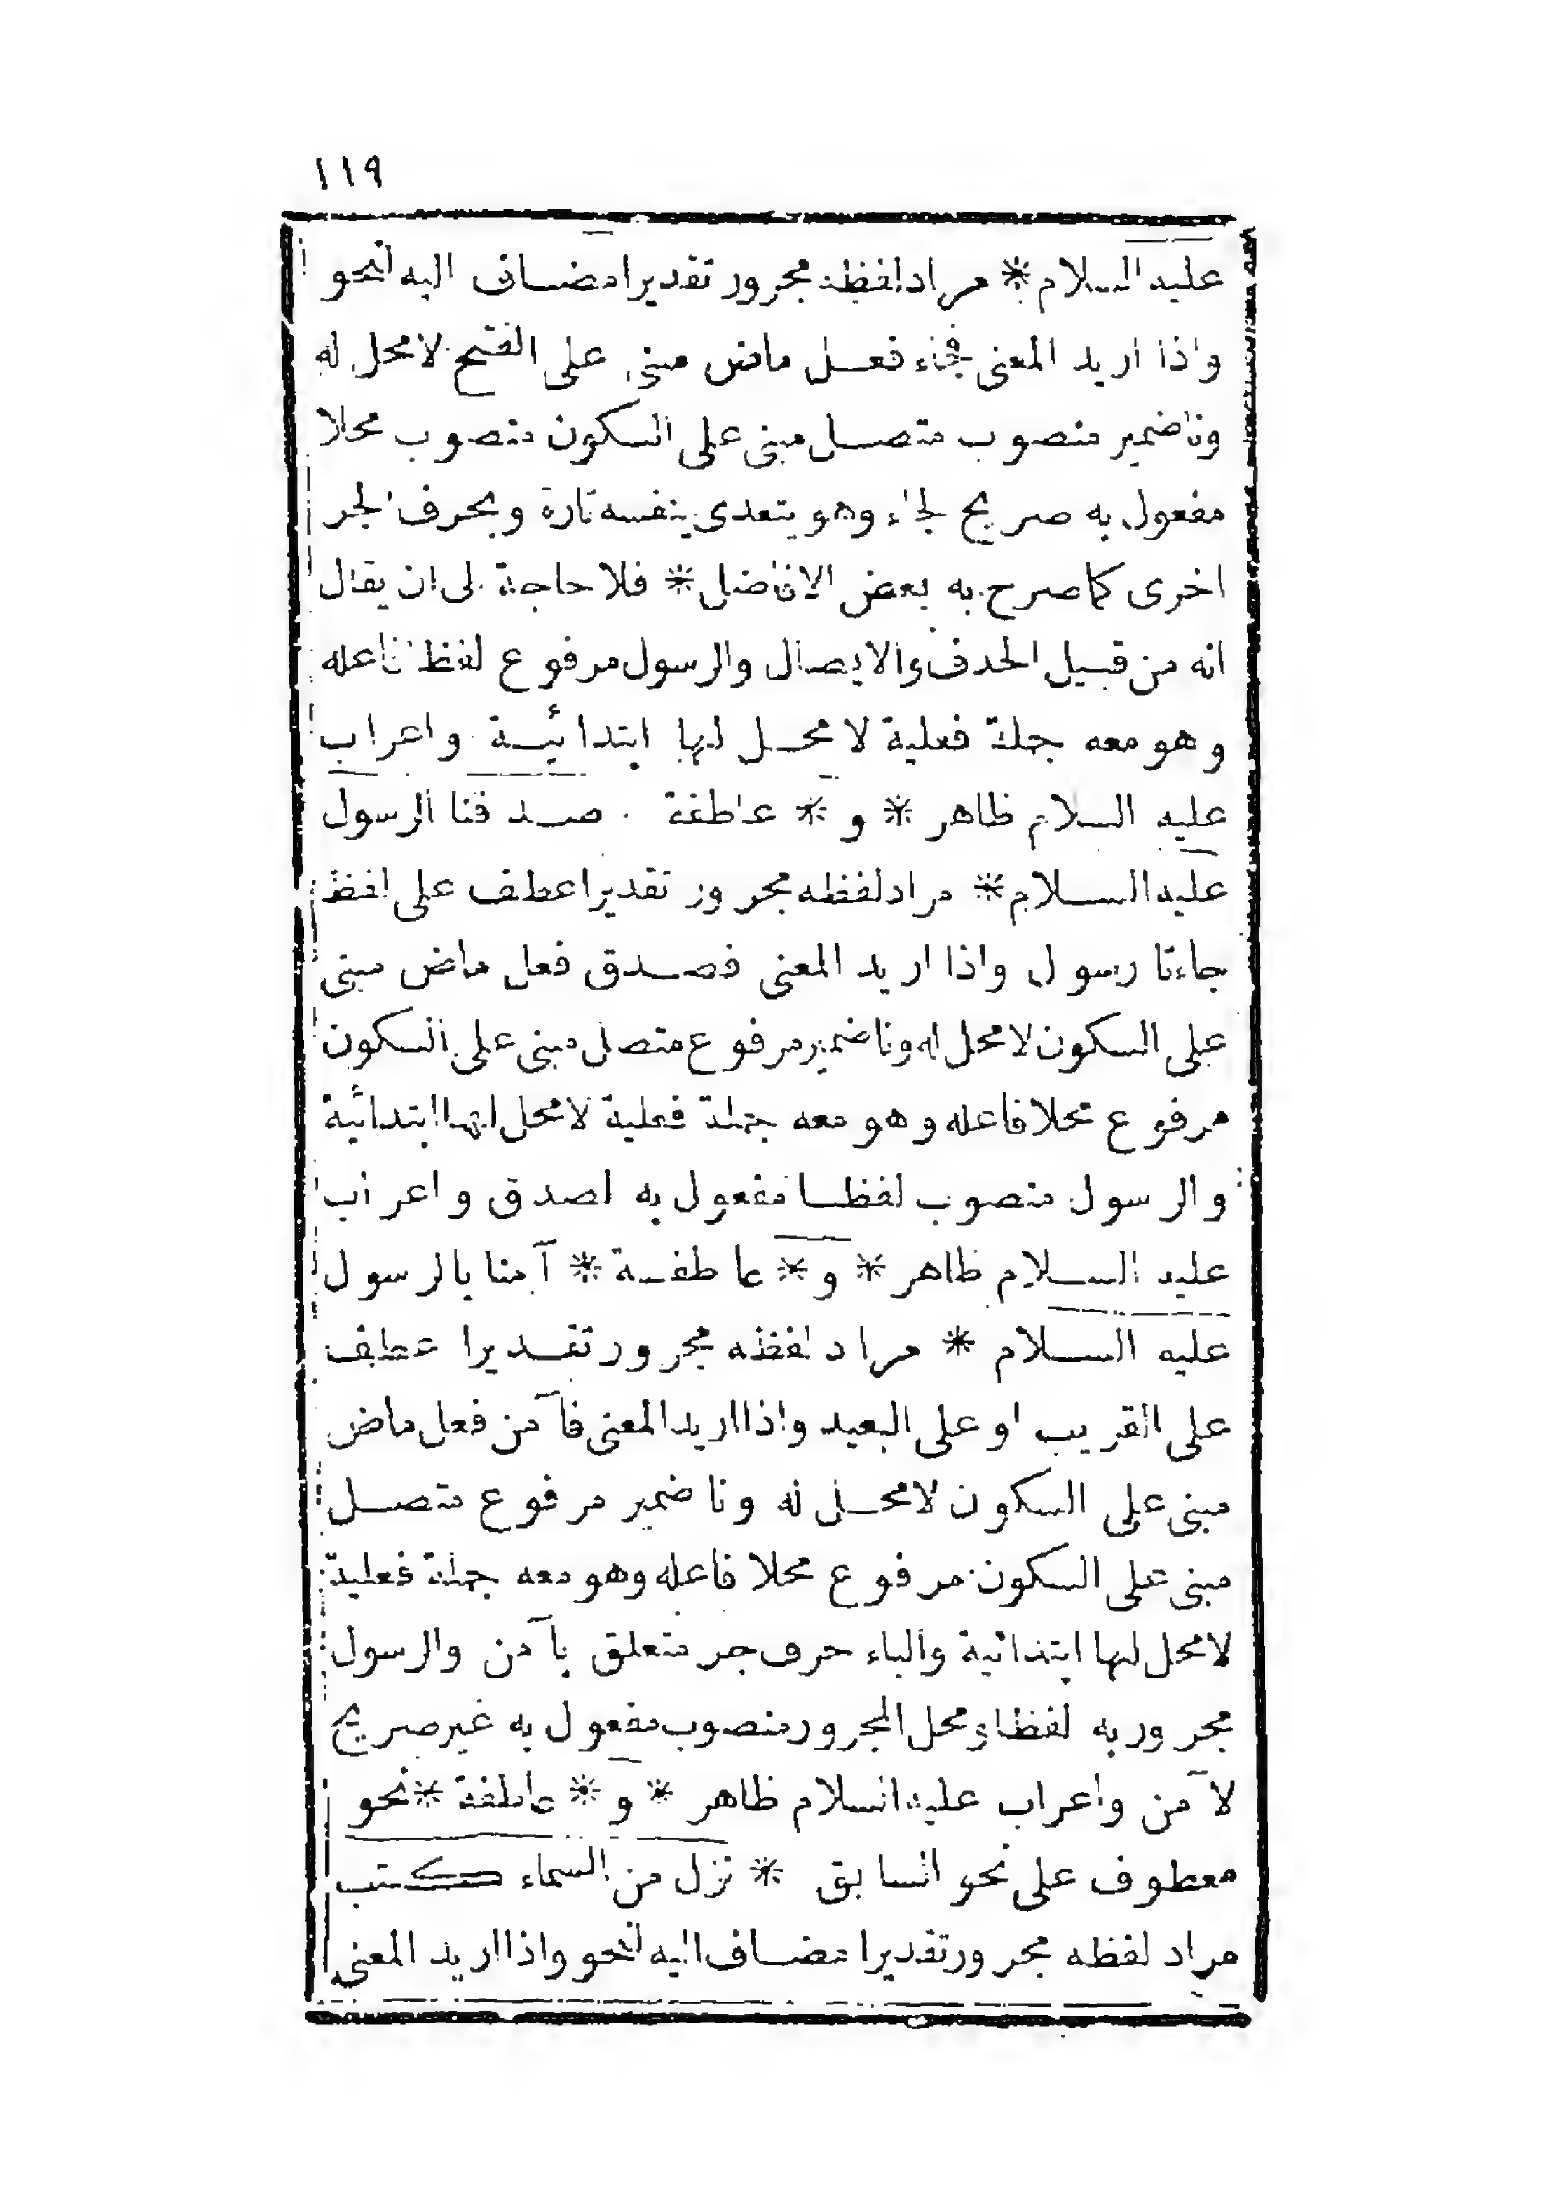 ١١٩
عليه السلام * مراد لفظه مجرور تقديرا مضاف اليه لنحو
واذا اريد المعنى فجاء فعل ماض مبنى على الفتح لا محل له
ونا ضمير منصوب متصل مبنى على السكون منصوب محلا
مفعول به صريح لجاء وهو يتعدى بنفسه تارة وبحرف الجر
اخرى كما صرح به بعض الافاضل * فلا حاجة الى ان يقال
انه من قبيل الحذف والايصال والرسول مرفوع لفظا فاعله
وهو معه جملة فعلية لا محل لها ابتدائية واعراب
عليه السلام ظاهر * و * عاطفة صدقنا الرسول
عليه السلام * مراد لفظه مجرور تقديرا عطف على لفظ
جاءنا رسول واذا اريد المعنى فصدق فعل ماض مبنى
على السكون لا محل له ونا ضمير مرفوع متصل مبنى على السكون
مرفوع محلا فاعله وهو معه جملة فعلية لا محل لها ابتدائية
والرسول منصوب لفظا مفعول به لصدق واعراب
عليه السلام ظاهر * و * عاطفة * آمنا بالرسول
عليه السلام * مراد لفظه مجرور تقديرا عطف
على القريب او على البعيد واذا اريد المعنى فآمن فعل ماض
مبنى على السكون لا محل له ونا ضمير مرفوع متصل
مبنى على السكون مرفوع محلا فاعله وهو معه جملة فعلية
لا محل لها ابتدائية والباء حرف جر متعلق بآمن والرسول
مجرور به لفظا ومحل المجرور منصوب مفعول به غير صريح
لآمن واعراب عليه السلام ظاهر * و * عاطفة * نحو
معطوف على نحو السابق * نزل من السماء كتب
مراد لفظه مجرور تقديرا مضاف اليه لنحو واذا اريد المعنى